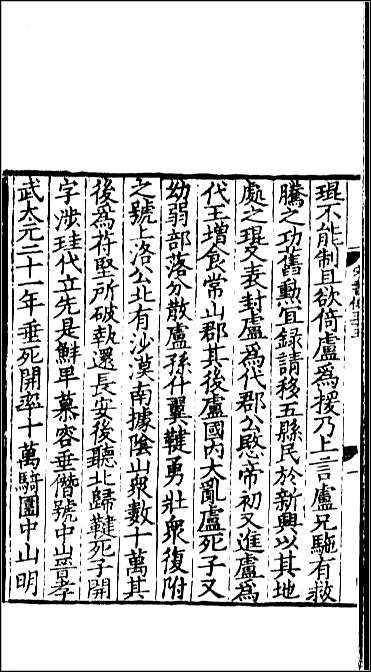 琨不能制且欲倚盧為援乃上言盧兄馳有救
騰之功舊勲宜録請移五縣民於新興以其地
處之琨又表封盧為代郡公愍帝初又進盧為
代王增食常山郡其後盧國内大亂盧死子又
幼弱部落分散盧孫什翼鞬勇壯衆復附
之號上洛公北有沙漠南據陰山衆數十萬其
後為苻堅所破執還長安後聽北歸鞬死子開
字涉珪代立先是鮮卑慕容垂僭號中山晉孝
武太元二十一年垂死開率十萬騎圍中山明